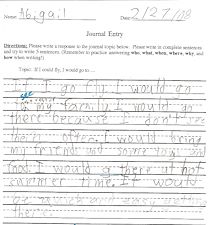 Name: Abigail Date: 2/27/08
Journal Entry
Directions: Please write a response to the journal topic below. Please write in complete sentences
and try to write 5 sentences. (Remember to practice answering who, what, when, where, why, and
how when writing!)
Topic: If I could fly, I would go to ...
If I go fly I would go
see my family. I would go
there because I don't see
them often. I would bring
my friend and some toy and
food. I would go there at hot
summer time. It would
be quick and easy getting
there.